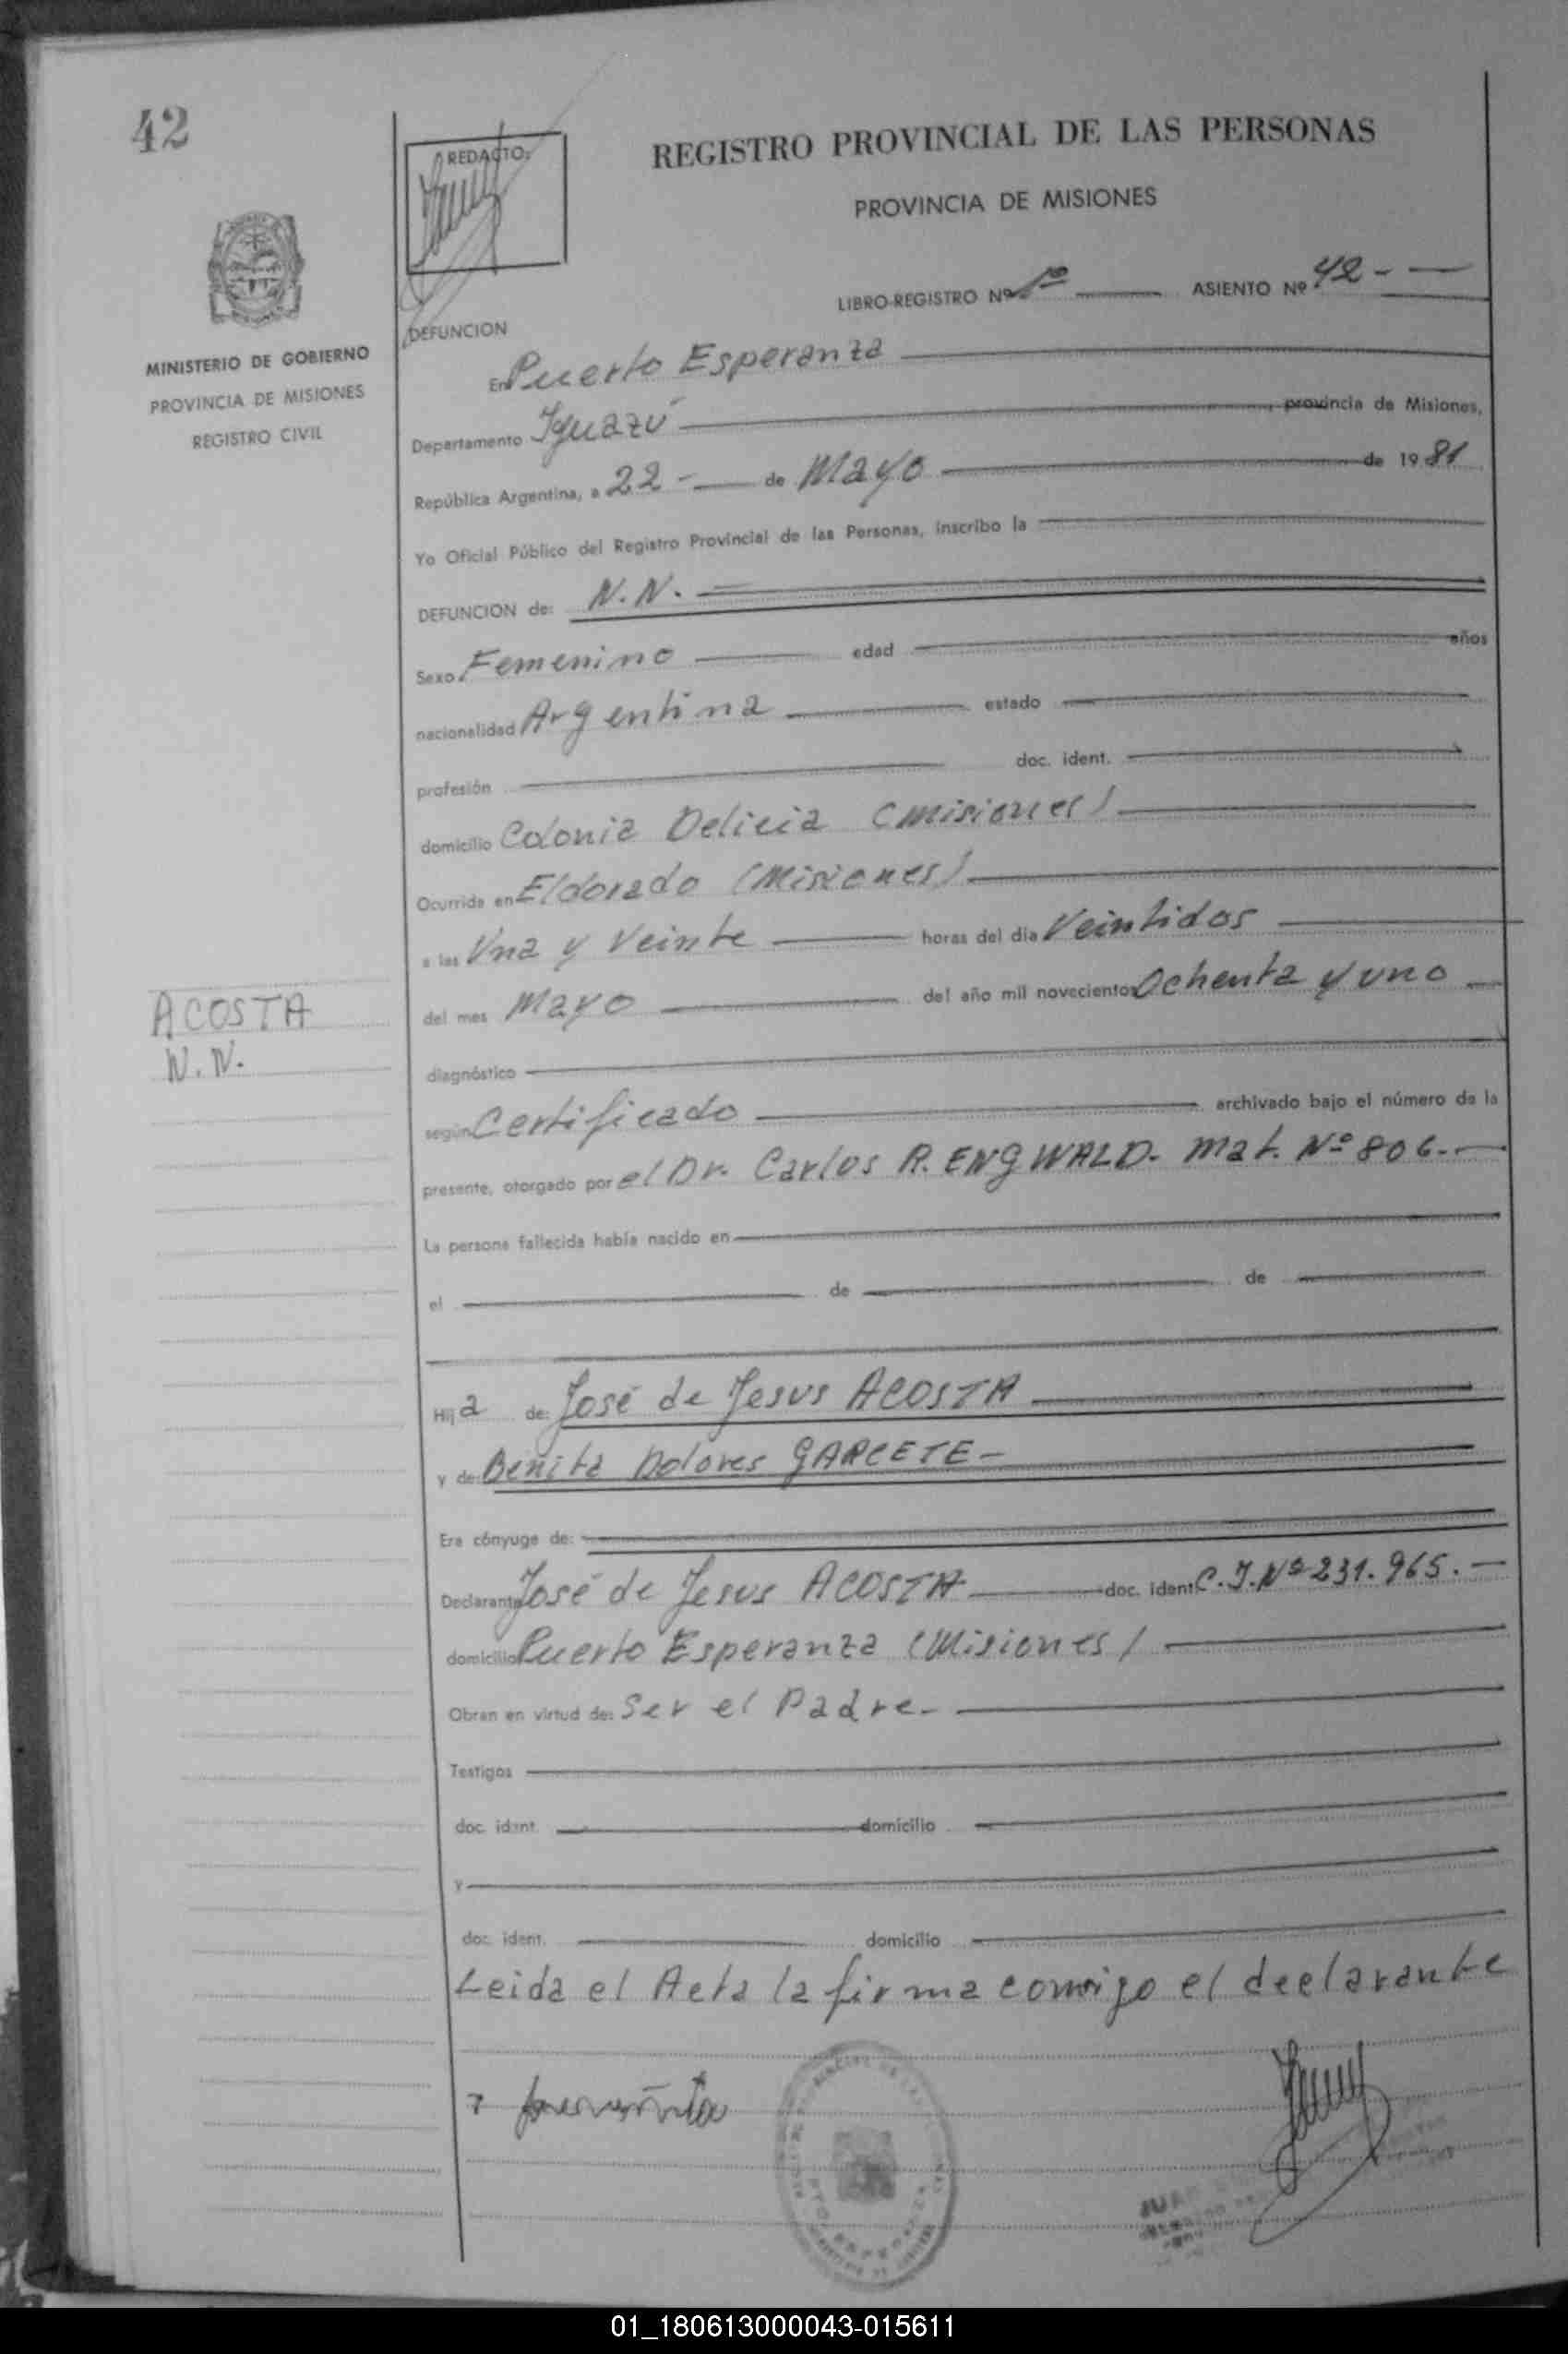 42
REDACTO:
REGISTRO PROVINCIAL DE LAS PERSONAS
PROVINCIA DE MISIONES
LIBRO-REGISTRO Nº 1º ASIENTO Nº 42 -
MINISTERIO DE GOBIERNO
PROVINCIA DE MISIONES
REGISTRO CIVIL
DEFUNCION
En Puerto Esperanza
Departamento Iguazú , provincia de Misiones,
República Argentina, a 22 - de Mayo de 1981
Yo Oficial Público del Registro Provincial de las Personas, inscribo la
DEFUNCION de: N.N.
Sexo Femenino edad años
nacionalidad Argentina estado
profesión doc. ident.
domicilio Colonia Delicia (Misiones)
Ocurrida en Eldorado (Misiones)
a las Una y Veinte horas del día Veintidos
del mes Mayo del año mil novecientos Ochenta y uno
ACOSTA
N.N.
diagnóstico
según Certificado archivado bajo el número de la
presente, otorgado por el Dr. Carlos R. ENGWALD. Mat. Nº 806.-
La persona fallecida había nacido en
el de de
Hija de: José de Jesus ACOSTA
y de: Benita Dolores GARCETE -
Era cónyuge de:
Declarante José de Jesus ACOSTA doc. ident. C.I. Nº 231.965.-
domicilio Puerto Esperanza (Misiones)
Obran en virtud de: Ser el Padre.-
Testigos
doc. ident. domicilio
y
doc. ident. domicilio
Leida el Acta la firma comigo el declarante
JUAN
01_180613000043-015611